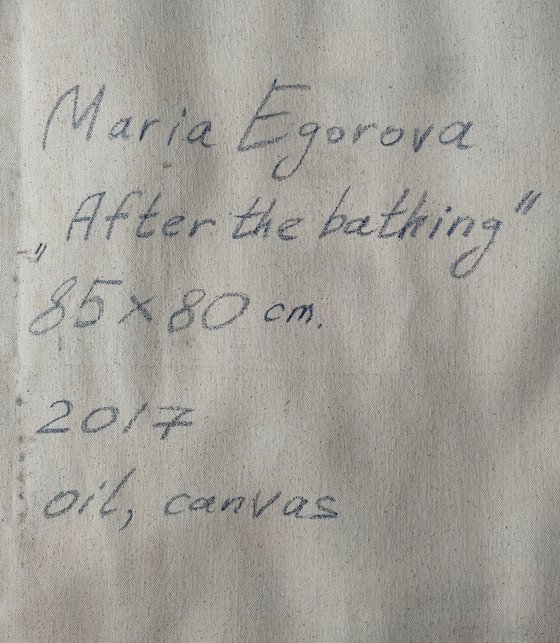 Maria Egorova
„After the bathing"
85×80 cm.
2017
oil, canvas